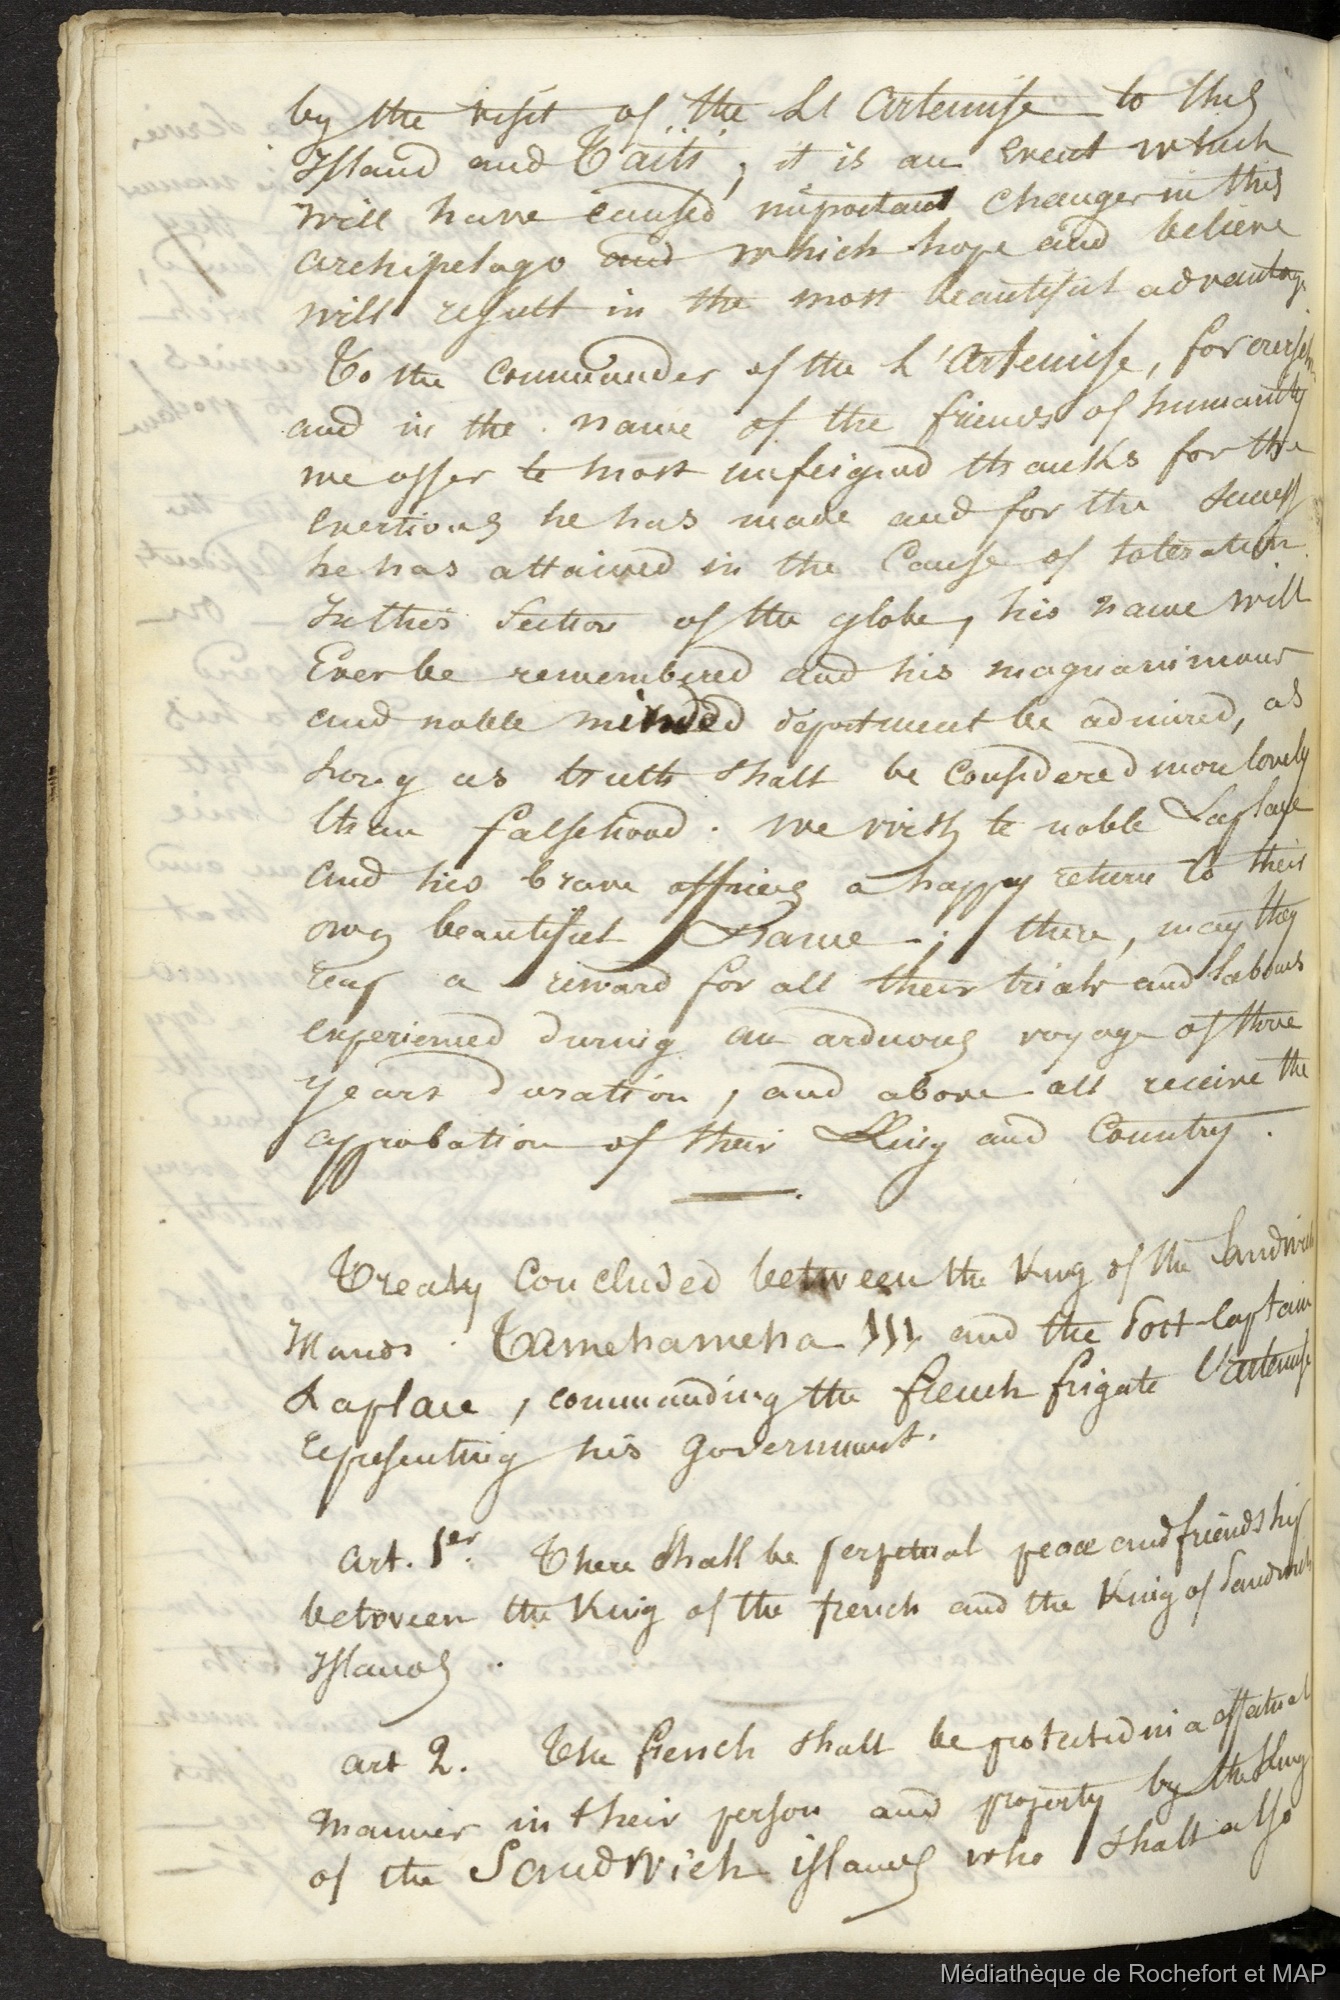 by the visit of the Lt Artemise to this
Island and Taïti, it is an event which
will have caused important changes in this
archipelago and which hope and believe
will result in the most beautiful advantage
To the commander of the L'Artemise, for
and in the name of the friends of humanity
we offer te most unfeigned thanks for the
exertions he has made and for the success
he has attained in the Cause of toleration
In this Section of the globe, his name will
Ever be remembered and his magnanimous
and noble minded deportment be admired, as
Long as truth shall be considered more lovely
than falsehood. we wish te noble Laplace
and his brave officers a happy return to their
own beautiful France; there, may they
reap a reward for all their trials and Labours
experienced during an arduous voyage of three
years duration, and above all receive the
approbation of their King and Country.
Treaty Concluded between the King of the Sandwich
Islands. Tamehameha III and the Post-Captain
Laplace, commanding the french frigate l'artemise
representing his Government.
art. 1er. There shall be perpetual peace and friendship
between the King of the french and the King of Sandwich
Islands.
art 2. The french shall be protected in a effectual
manner in their person and property by the King
of the Sandwich islands who shall also
Médiathèque de Rochefort et MAP